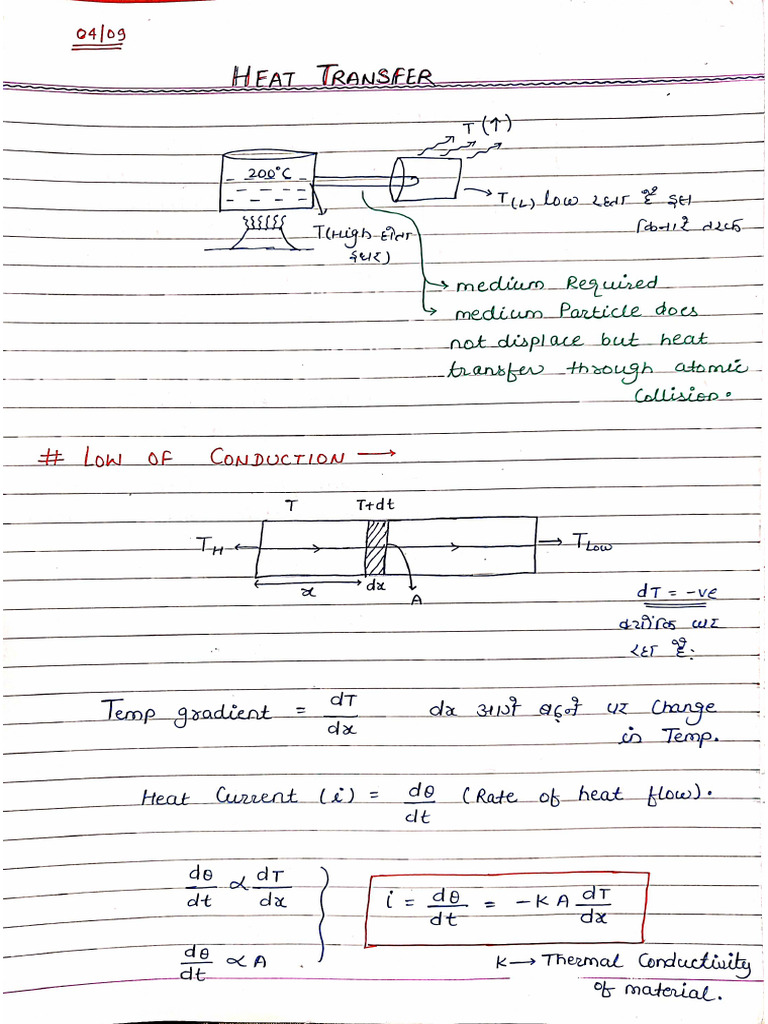 04/09
HEAT TRANSFER
T (↑)
200°C
T(L) low रहता है इस
किनारे तरफ
T(High होता
इधर)
medium Required
medium Particle does
not displace but heat
transfer through atomic
Collision.
# LOW OF CONDUCTION →
T T+dt
TH TLow
x dx A
dT = -ve
क्योंकि घट
रहा है.
Temp gradient = dT/dx dx आगे बढ़ने पर Change
in Temp.
Heat Current (i) = dθ/dt (Rate of heat flow).
dθ/dt ∝ dT/dx
i = dθ/dt = -KA dT/dx
dθ/dt ∝ A
K → Thermal Conductivity
of material.